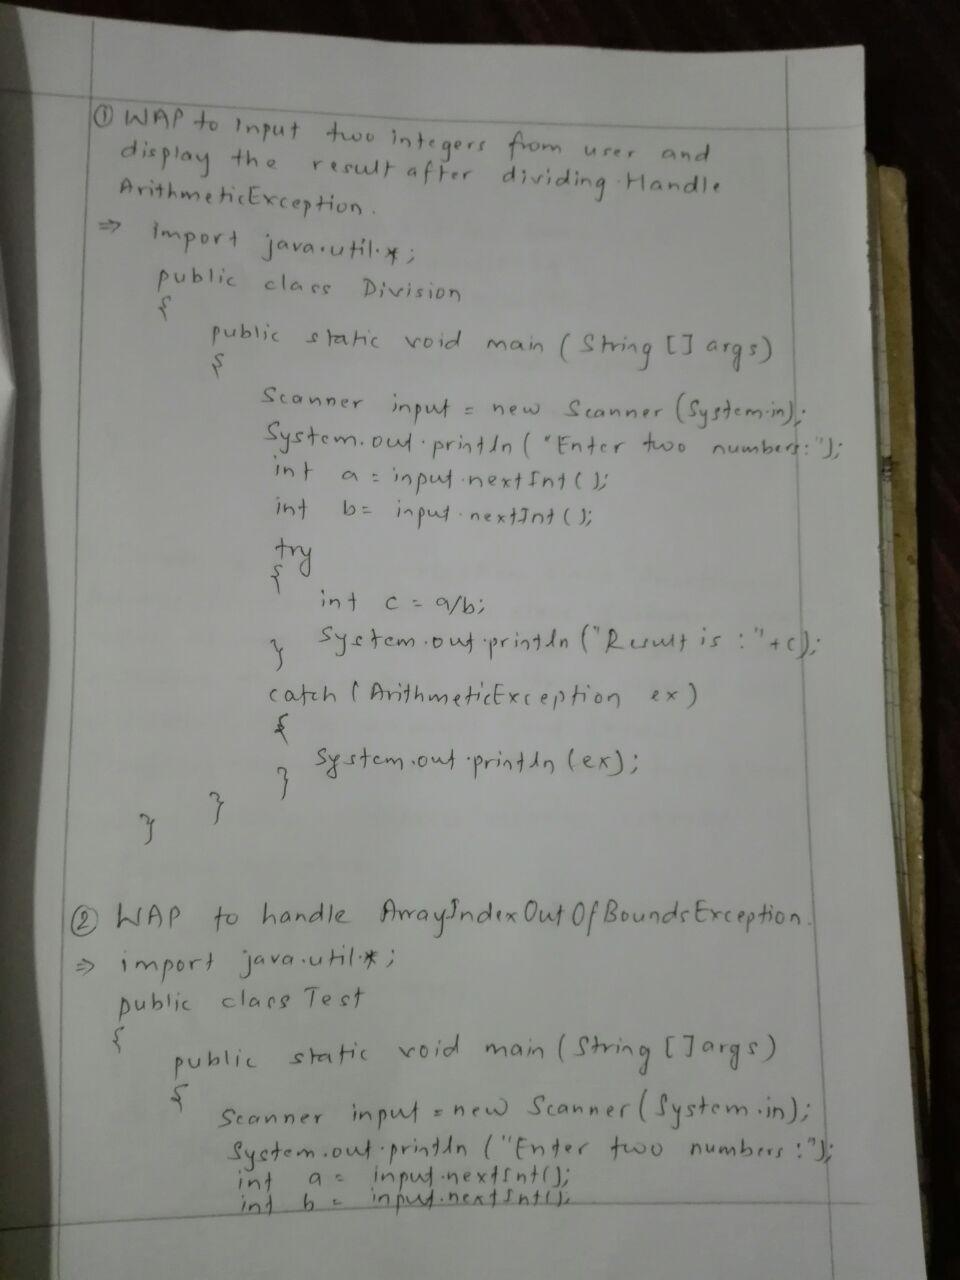 ① WAP to input two integers from user and
display the result after dividing. Handle
ArithmeticException.
⇒ import java.util.*;
public class Division
{
public static void main (String [] args)
{
Scanner input = new Scanner (System.in);
System.out.println ("Enter two numbers:");
int a = input.nextInt();
int b = input.nextInt();
try
{
int c = a/b;
System.out.println ("Result is :"+c);
}
catch (ArithmeticException ex)
{
System.out.println (ex);
}
}
}
② WAP to handle ArrayIndexOutOfBoundsException.
⇒ import java.util.*;
public class Test
{
public static void main (String [] args)
{
Scanner input = new Scanner (System.in);
System.out.println ("Enter two numbers :");
int a = input.nextInt();
int b = input.nextInt();